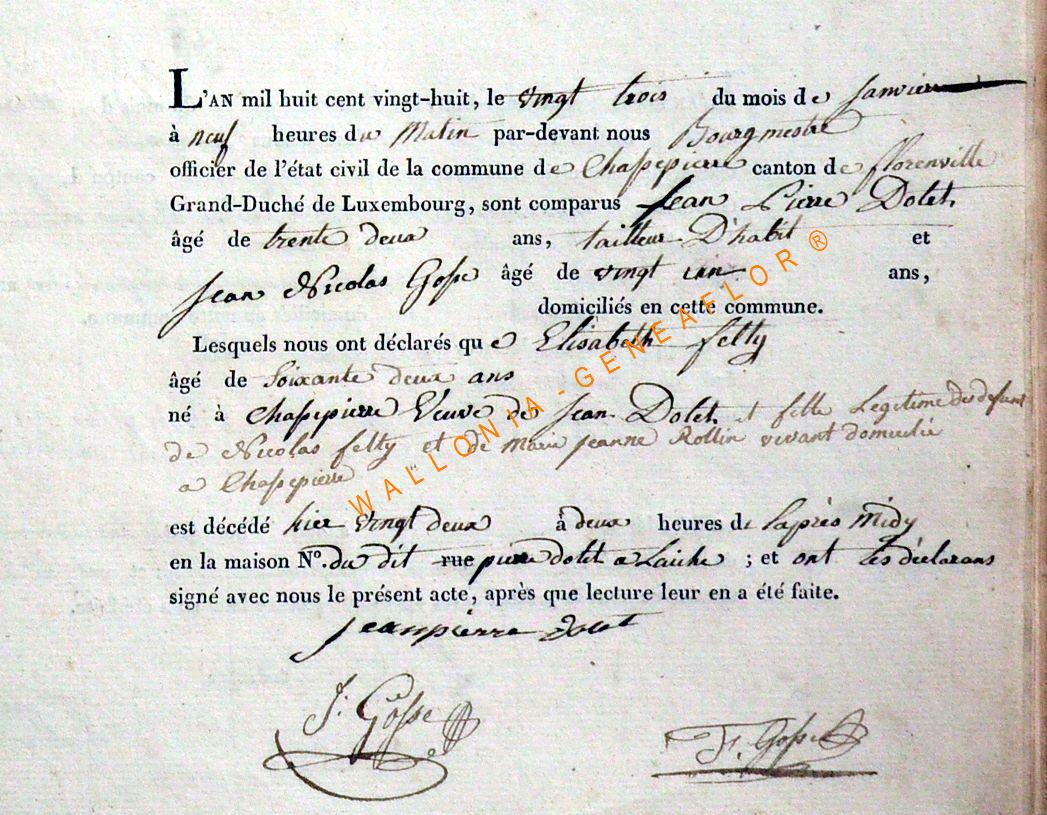 L'AN mil huit cent vingt-huit, le vingt trois du mois de Janvier
à neuf heures du Matin par-devant nous Bourgmestre
officier de l'état civil de la commune de Chassepierre canton de florenville
Grand-Duché de Luxembourg, sont comparus Jean Pierre Dolet
âgé de trente deux ans, tailleur D'habit et
Jean Nicolas Gosse âgé de vingt un ans,
domiciliés en cette commune.
Lesquels nous ont déclarés que Elisabeth felty
âgé de Soixante deux ans
né à Chassepierre Veuve de Jean Dolet et fille Legitime des defunt
de Nicolas felty et de Marie Jeanne Rollin vivant domicilié
a Chassepierre
est décédé hier vingt deux à deux heures de l'après Midy
en la maison N°. du dit rue pierre dolet a Laiche ; et ont les déclarans
signé avec nous le présent acte, après que lecture leur en a été faite.
Jeanpierre dolet
J: Gosse
Fr. Gosse
WALLONIA-GENEAFLOR®